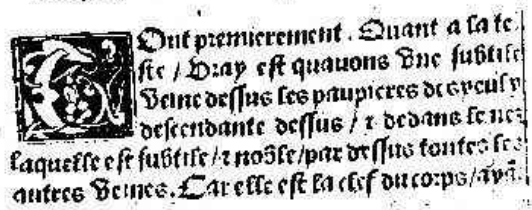 Tout premierement. Quant a la te
ste / Vray est quauons Vne subtile
Veine dessus les paupieres des yeulx
descendante dessus / ⁊ dedans le nez
laquelle est subtile / ⁊ noble / par dessus toutes les
autres Veines. Car elle est la clef du corps / aya